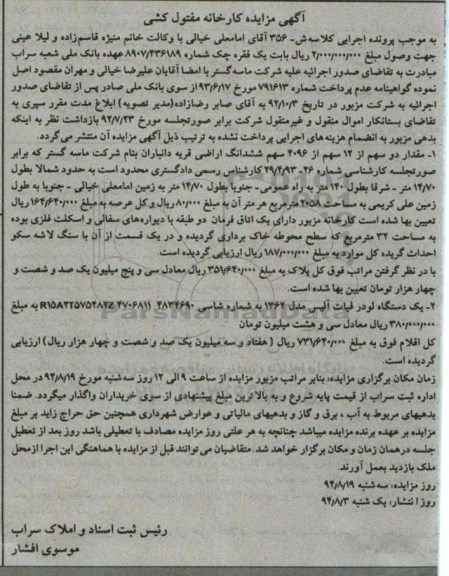 آگهی مزایده کارخانه مفتول کشی
به موجب پرونده اجرایی کلاسه ش- ۳۵۶ آقای امامعلی خیالی با وکالت خانم منیژه قاسم زاده و لیلا عینی
جهت وصول مبلغ ۲/۰۰۰/۰۰۰/۰۰۰ ریال بابت یک فقره چک شماره ۸۹۰۷/۴۳۶۱۸۹ عهده بانک ملی شعبه سراب
مبادرت به تقاضای صدور اجرائیه علیه شرکت ماسه گستر با امضا آقایان علیرضا خیالی و مهران مقصود اصل
نموده گواهینامه عدم پرداخت شماره ۷۹۱۶۱۳ مورخ ۹۳/۶/۱۷ از سوی بانک ملی صادر پس از تقاضای صدور
اجرائیه به شرکت مزبور در تاریخ ۹۲/۱۰/۳ به آقای صابر رضازاده(مدیر تصویه) ابلاغ مدت مقرر سپری به
تقاضای بستانکار اموال منقول و غیرمنقول شرکت برابر صورتجلسه مورخ ۹۲/۷/۲۳ بازداشت نظر به اینکه
بدهی مزبور به انضمام هزینه های اجرایی پرداخت نشده به ترتیب ذیل آگهی مزایده آن منتشر می گردد.
۱- مقدار دو سهم از ۱۲ سهم از ۴۰۹۶ سهم ششدانگ اراضی قریه دانباران بنام شرکت ماسه گستر که برابر
صورتجلسه کارشناسی شماره ۲۶-۲۹۲/۹۳ کارشناس رسمی دادگستری محدود است به حدود شمالا بطول
۱۴/۷۰ متر - شرقا بطول ۱۴۰ متر به راه عمومی- جنوبا بطول ۱۴/۷۰ متر به زمین امامعلی خیالی - جنوبا به طول
زمین علی کریمی به مساحت ۲۰۵۸ مترمربع هر متر آن به مبلغ ۸۰/۰۰۰ ریال و کل عرصه به مبلغ ۱۶۴/۶۴۰/۰۰۰ ریال
تعیین بها شده است کارخانه مزبور دارای یک اتاق فرمان دو طبقه با دیوارهای سفالی و اسکلت فلزی بوده
به مساحت ۳۲ مترمربع که سطح محوطه خاک برداری گردیده و در یک قسمت از آن با سنگ لاشه سکو
احداث گریده کل موارد به مبلغ ۱۸۷/۰۰۰/۰۰۰ ریال ارزیابی گردیده است.
با در نظر گرفتن مراتب فوق کل پلاک به مبلغ ۳۵۱/۶۴۰/۰۰۰ ریال معادل سی و پنج میلیون یک صد و شصت و
چهار هزار تومان تعیین بها شده است.
۲- یک دستگاه لودر فیات آلیس مدل ۱۳۶۴ به شماره شاسی ۴۸۳۴۶۹۰ ۴۷۰۶۸۱۱ به مبلغ
۳۸۰/۰۰۰/۰۰۰ ریال معادل سی و هشت میلیون تومان
کل اقلام فوق به مبلغ ۷۳۱/۶۴۰/۰۰۰ ریال ( هفتاد و سه میلیون یک صد و شصت و چهار هزار ریال) ارزیابی
گردیده است.
زمان مکان برگزاری مزایده: بنابر مراتب مزبور مزایده از ساعت ۹ الی ۱۲ روز سه شنبه مورخ ۹۴/۸/۱۹ در محل
اداره ثبت سراب از قیمت پایه شروع و به بالاترین مبلغ پیشنهادی از سوی خریداران واگذار میگردد. ضمنا
بدهیهای مربوط به آب ، برق و گاز و بدهیهای مالیاتی و عوارض شهرداری همچنین حق حراج زاید بر مبلغ
مزایده بر عهده برنده مزایده میباشد چنانچه به هر علتی روز مزایده مصادف با تعطیلی باشد روز بعد از تعطیل
جلسه در همان زمان و مکان برگزار خواهد شد. متقاضیان می توانند قبل از مزایده با هماهنگی این اجرا از محل
ملک بازدید بعمل آورند.
روز مزایده: سه شنبه ۹۴/۸/۱۹
روز انتشار: یک شنبه ۹۴/۸/۳
رئیس ثبت اسناد و املاک سراب
موسوی افشار